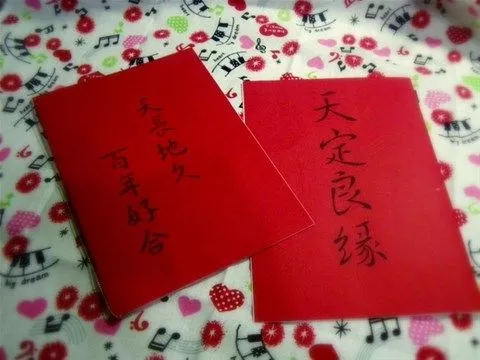 天长地久
百年好合
天定良缘
by dream
by dream